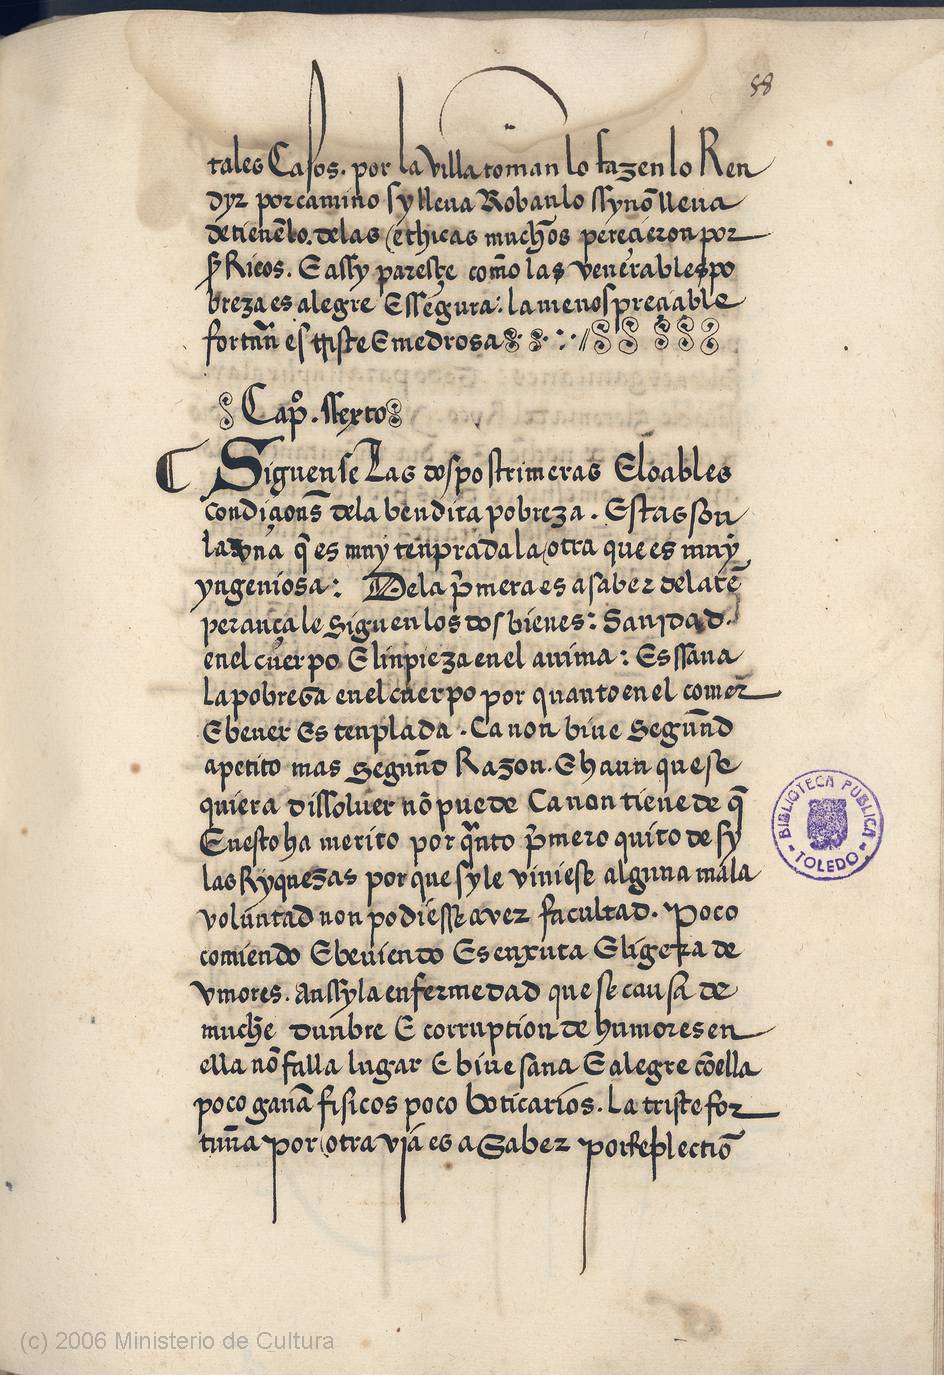 58
tales Casos. por la villa toman lo fazen lo Ren
dyr por camino sy lleua Robanlo ssy nõ lleua
detienẽlo. delas ethicas muchos pereçieron por
Ricos. E assy paresçe como las venerables po
breza es alegre E ssegura: la menospreçiable
fortũa es triste E medrosa
Capº. ssexto
Siguense Las dos postrimeras E loables
condiçiones dela bendita pobreza. Estas son
la vna q̃ es muy tenprada la otra que es muy
yngeniosa: Dela p̃mera es a saber dela tẽ
perança le siguen los dos bienes: Sanidad.
en el cuerpo E linpieza en el anima: Es ssana
la pobreza en el cuerpo por quanto en el comer
E beuer Es tenplada. Ca non biue segund
apetito mas segund Razon. E haun que se
quiera dissoluer nõ puede Ca non tiene de q̃
E nesto ha merito por q̃nto p̃mero quito de sy
las Ryquezas por que sy le viniese alguna mala
voluntad non podiesse aver facultad. Poco
comiendo E beuiendo Es enxuta E ligera de
vmores. Anssy la enfermedad que se causa de
muche dunbre E corruption de humores en
ella nõ falla lugar E biue sana E alegre cõ ella
poco ganã fisicos poco boticarios. La triste for
tuna por otra via es a Saber por Replectiõ
BIBLIOTECA PUBLICA
TOLEDO
(c) 2006 Ministerio de Cultura